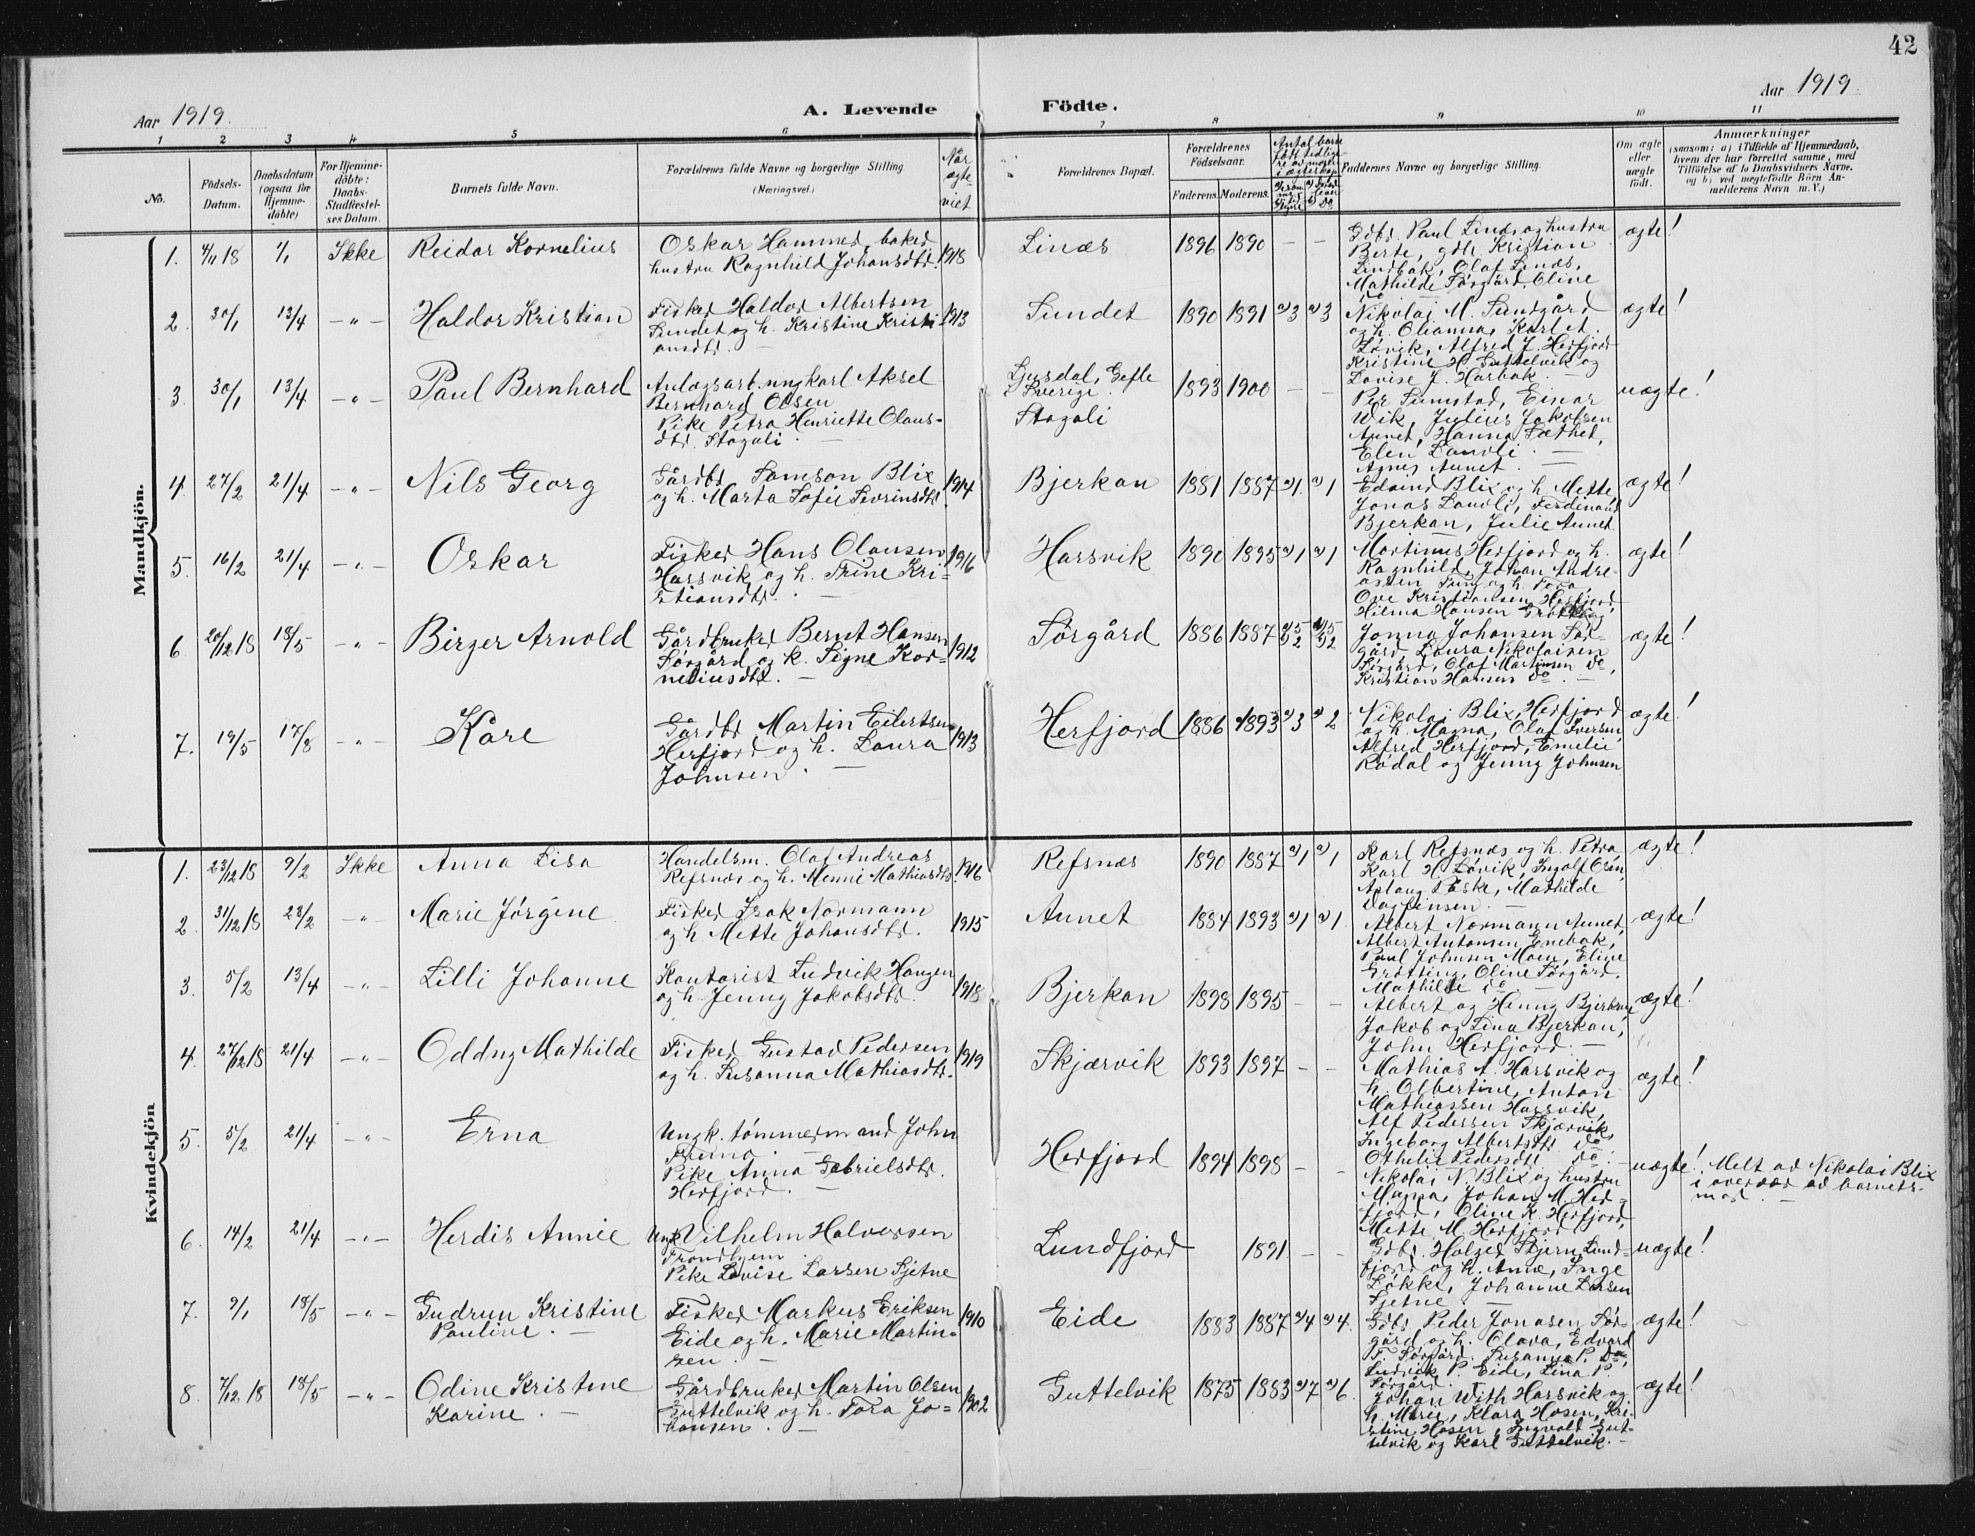 42
Aar 1919.
A. Levende Födte.
Aar 1919.
1 2 3 4 5 6 7 8 9 10 11
No.
Födsels-
Datum.
Daabsdatum
(ogsaa for
Hjemme-
döbte)
For Hjemme-
döbte:
Daabs-
Stadfæstel-
ses Datum.
Barnets fulde Navn.
Forældrenes fulde Navne og borgerlige Stilling
(Næringsvei.)
Når
ægte-
viet
Forældrenes Bopæl.
Forældrenes
Födselsaar.
Faderens. Moderens.
Antal barn
Faddernes Navne og borgerlige Stilling.
Om ægte
eller
uægte
födt.
Anmærkninger
(saasom: a) i Tilfælde af Hjemmedaab,
hvem der har forrettet samme, med
Tilföielse af to Daabsvidners Navne,
og b) ved uægtefödte Börn An-
melderens Navn m. V.)
Mandkjön.
1. 4/11 18 1/1 Ikke Reidar Kornelius
Oskar Hammer, baker
hustru Ragnhild Johansdtr. 1918
Linæs 1896 1890 – –
Gdbr. Paul Linæs og hustru
Berte, gdbr. Kristian
Lindbak, Olaf Linæs,
Mathilde Sørgård, Oline
do
ægte!
2. 30/1 13/4 -"- Haldor Kristian
Fisker Haldor Albertsen
Sundet og h. Kristine Kristi-
ansdtr. 1913
Sundet 1890 1891 a)3 a)3
Nikolai M. Sundgård
og h. Olianna, Karl A.
Løvik, Alfred J. Herfjord
Kristine H. Guttelvik og
Lovise J. Harbak.
ægte!
3. 30/1 13/4 -"- Paul Bernhard
Anlægsarb. ungkarl Aksel
Bernhard Olsen
Pike Petra Henriette Olaus-
dtr. Stagali.
Ljusdal, Gefle
Sverige.
Stagali
1893 1900 – –
Per Sumstad, Einar
Wik, Julius Jakobsen
Aunet, Hanna Sæthet,
Elen Lauvli.
Agnes Aunet.
uægte!
4. 27/2 21/4 -"- Nils Georg
Gårdbr. Samson Blix
og h. Marta Sofie Sevrinsdtr. 1914
Bjerkan 1881 1887 a)1 a)1
Edvind Blix og h. Mette,
Jonas Lauvli, Ferdinand
Bjerkan, Julie Aunet
ægte!
5. 16/2 21/4 -"- Oskar
Fisker Hans Olausen
Harsvik og h. Trine Kri-
stiansdtr. 1916
Harsvik 1890 1895 a)1 a)1
Martinus Herfjord og h.
Ragnhild, Johan Andre-
assen Tung og h. Tora,
Ove Kristiansen Herfjord,
Hilma Hansen Grøtting
ægte!
6. 20/12 18 18/5 -"- Birger Arnold
Gårdbruker Bernt Hansen
Sørgård og h. Signe Kor-
neliusdtr. 1912
Sørgård 1886 1887
Jonna Johansen Sør-
gård, Laura Nikolaisen
Sørgård, Olaf Martinsen do,
Kristian Hansen do.
ægte!
7. 19/5 17/8 -"- Kåre
Gårdbr. Martin Eilertsen
Herfjord og h. Laura
Johnsen. 1913
Herfjord 1886 1893 a)3 a)2
Nikolai Blix, Herfjord
og h. Magna, Olaf Iversen,
Alfred Herfjord, Emelie
Rødal og Jenny Johnsen
ægte!
Kvindekjön
1. 23/12 18 9/2 Ikke Anna Lisa
Handelsm. Olaf Andreas
Refsnæs og h. Menni Mathiasdtr. 1916
Refsnæs 1890 1887 a)1 a)1
Karl Refsnæs og h. Petra
Karl H. Løvik, Ingolf Osen,
Aslaug Paske, Mathilde
Dagfinsen.
ægte!
2. 31/12 18 23/2 -"- Marie Jørgine
Fisker Isak Normann
og h. Mette Johansdtr. 1915
Aunet 1884 1893 a)1 a)1
Albert Normann Aunet,
Albert Antonsen Enebak,
Paul Johnsen Moen, Eline
Grøtting, Oline Sørgård.
Mathilde do
ægte!
3. 5/2 13/4 -"- Lilli Johanne
Kontorist Ludvik Haugen
og h. Jenny Jakobsdtr. 1918
Bjerkan 1898 1895 – –
Albert og Henny Bjerkan,
Jakob og Lina Bjerkan,
John Herfjord.
ægte!
4. 27/12 18 21/4 -"- Oddny Mathilde
Fisker Gustav Pedersen
og h. Susanna Mathiasdtr. 1919
Skjærvik 1893 1897 – –
Mathias A. Harsvik og
h. Olbertine, Anton
Mathiassen Harsvik,
Alf Pedersen Skjærvik,
Ingeborg Albertsdtr. do
Othelie Pedersdtr. do.
ægte!
5. 5/2 21/4 -"- Erna
Ungk. tømmermand John
Pike Anna Gabrielsdtr.
Herfjord.
Herfjord 1894 1898 – –
Nikolai N. Blix og hustru
Magna, Johan M. Her-
fjord, Oline K. Herfjord,
Mette M. Herfjord
uægte!
Melt av Nikolai Blix
i overvær av barnets
mor.
6. 14/2 21/4 -"- Herdis Annie
Ungk. Vilhelm Halvorsen
Trondhjem
Pike Lovise Larsen Sjetne
Lundfjord 1891 – –
Gdbr. Holger Stjern, Lund-
fjord og h. Anne, Inge
Løkke, Johanne Larsen
Sjetne
uægte!
7. 9/1 18/5 -"- Gudrun Kristine
Pauline.
Fisker Markus Eriksen
Eide og h. Marie Martin-
sen. 1910
Eide 1883 1887 a)4 a)4.
Gdbr. Peder Jonasen Sør-
gård og h. Olava, Edvard
F. Sørgård, Susanna P. do,
Ludvik P. Eide, Lina P.
Sørgård.
ægte!
8. 7/12 18 18/5 -"- Odine Kristine
Karine.
Gårdbruker Martin Olsen
Guttelvik og h. Tora Jo-
hansen. 1902
Guttelvik 1875 1883 a)7 a)6.
Johan With Harsvik og
h. Marie, Klara Hosen, Kri-
stine Hosen, Ingvald Gut-
telvik og Karl Guttelvik.
ægte!